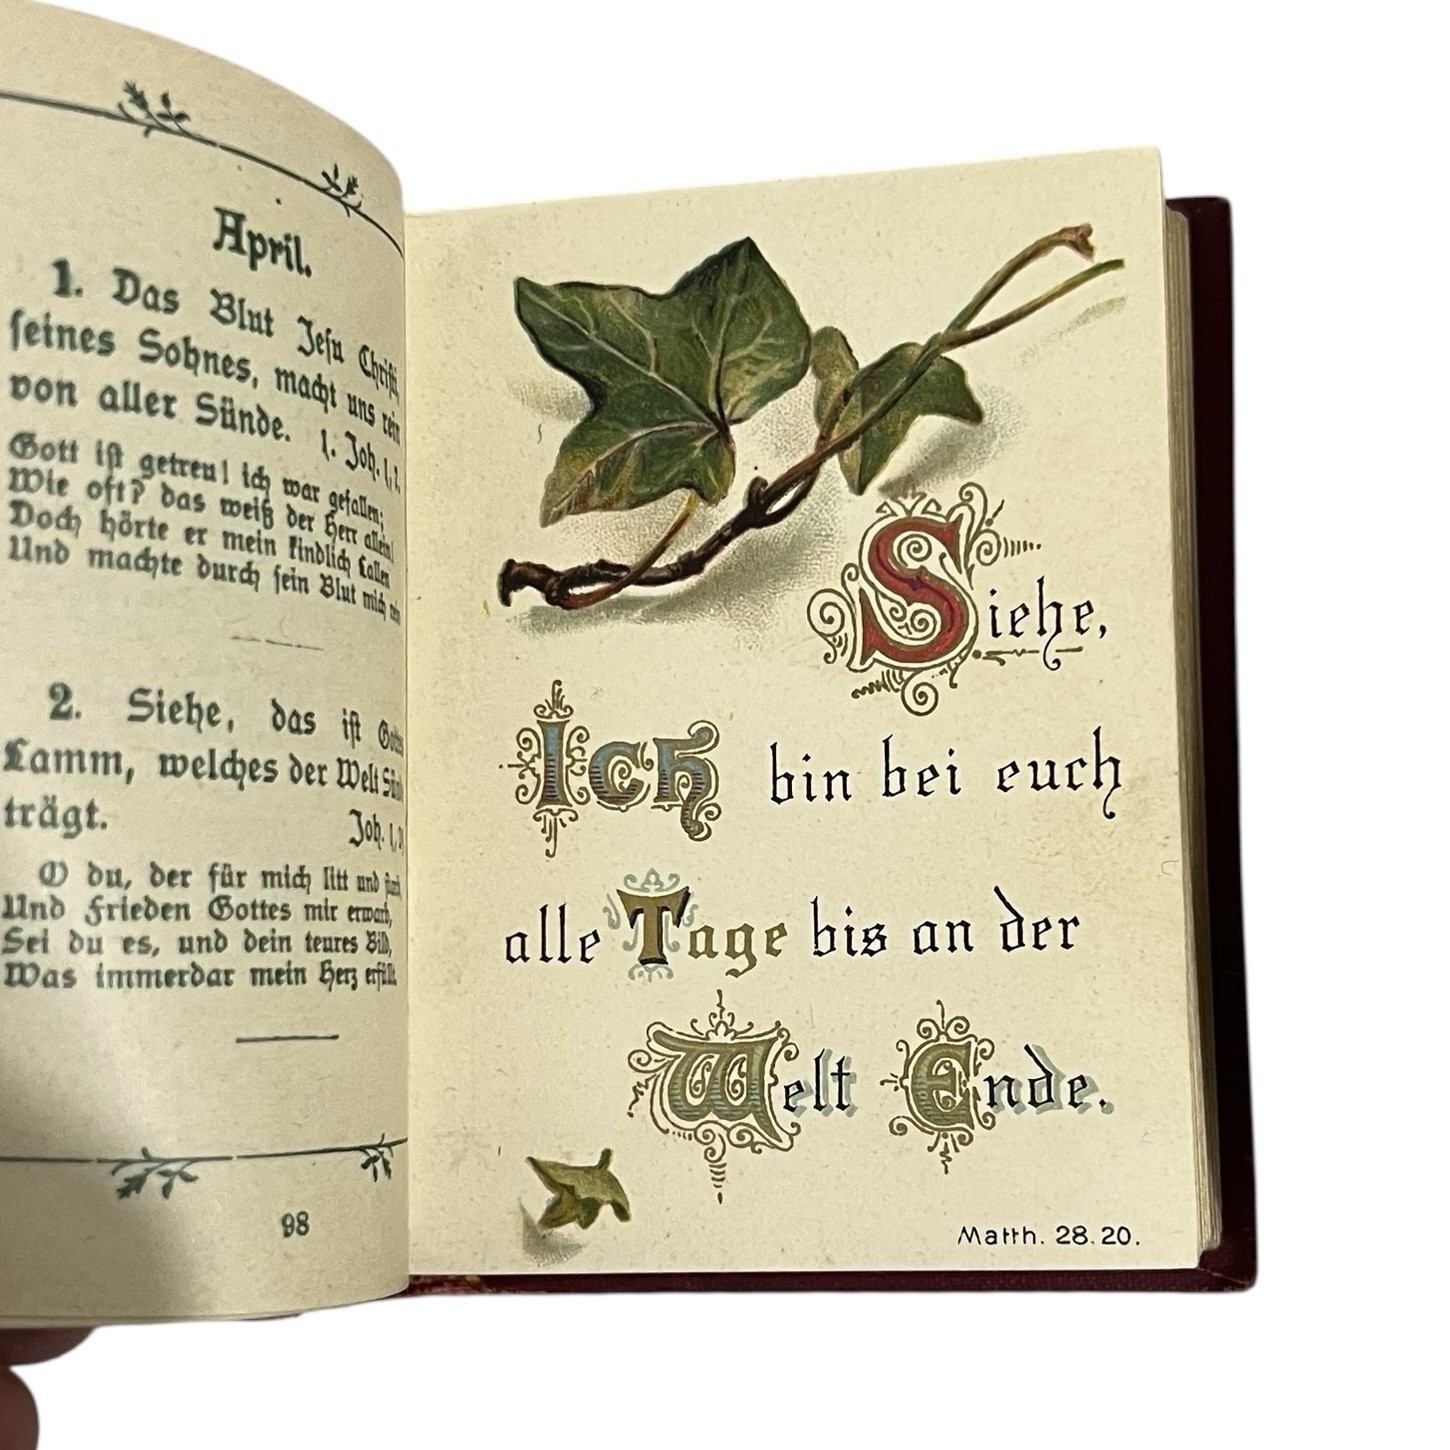 April.
1. Das Blut Jesu Christi,
seines Sohnes, macht uns rein
von aller Sünde. 1. Joh. 1,
Gott ist getreu! ich war gefallen;
Wie oft? das weiß der Herr allein!
Doch hörte er mein kindlich Lallen
Und machte durch sein Blut mich
2. Siehe, das ist Gottes
Lamm, welches der Welt
trägt. Joh. 1,
O du, der für mich litt und
Und Frieden Gottes mir erwarb,
Sei du es, und dein teures Bild,
Was immerdar mein Herz erfüllt.
98
Siehe,
Ich bin bei euch
alle Tage bis an der
Welt Ende.
Matth. 28.20.